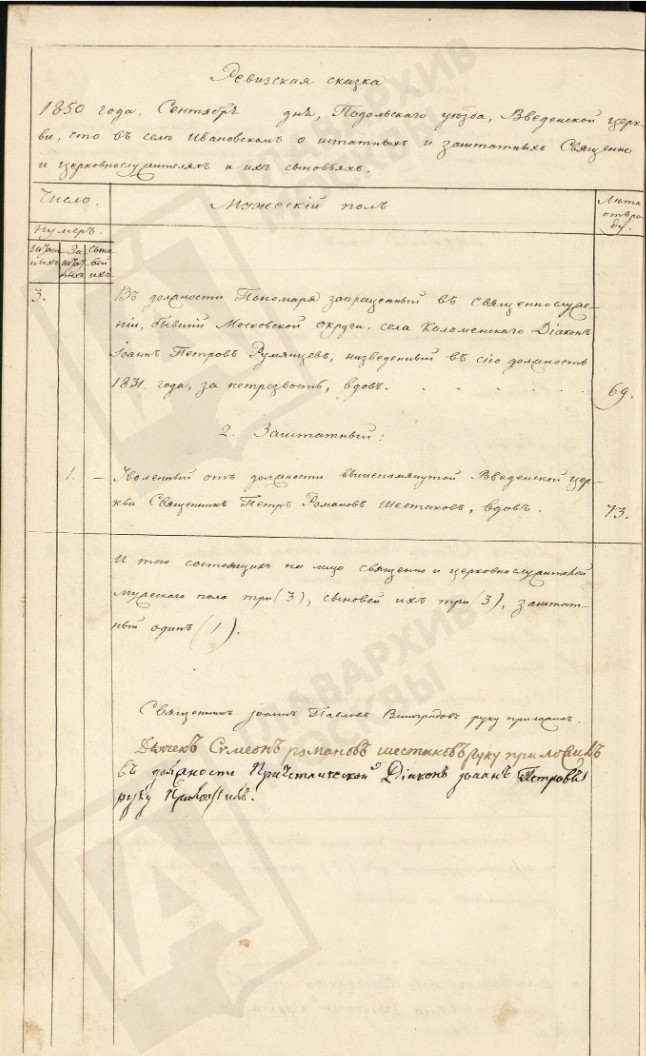 Ревизская сказка
1850 года, Сентября дня, Подольскаго уѣзда, Введенской церк-
ви, что въ селѣ Ивановскомъ о штатныхъ и заштатныхъ Священно
и церковнослужителяхъ и ихъ сыновьяхъ.
Число.
Мужескій полъ
Лѣта
отъ ро-
ду.
нумеръ.
Штат
ныхъ
За
штат
ныхъ
Сыно
вей
ихъ
3.
Въ должности Пономаря запрещенный въ священнослуже-
ніи, бывшій Московской округи, села Коломенскаго Діаконъ
Іоаннъ Петровъ Румянцевъ, низведенный въ сію должность
1831. года, за нетрезвость, вдовъ.
69.
2. Заштатный:
1. –
Уволенный отъ должности вышепомянутой Введенской цер-
кви Священникъ Петръ Романовъ Шестаковъ, вдовъ.
73.
И того состоящихъ на лицо священно и церковнослужителей
мужескаго пола три (3), сыновей ихъ три (3), заштат-
ный одинъ (1).
Священникъ Іоаннъ Павловъ Виноградовъ руку приложилъ.
Дьячекъ Симеонъ романовъ шестаковъ руку приложилъ
въ должности Причетнической Діаконъ Іоаннъ Петровъ
руку Приложилъ.
ГЛАВАРХИВ
МОСКВЫ
ГЛАВАРХИВ
МОСКВЫ